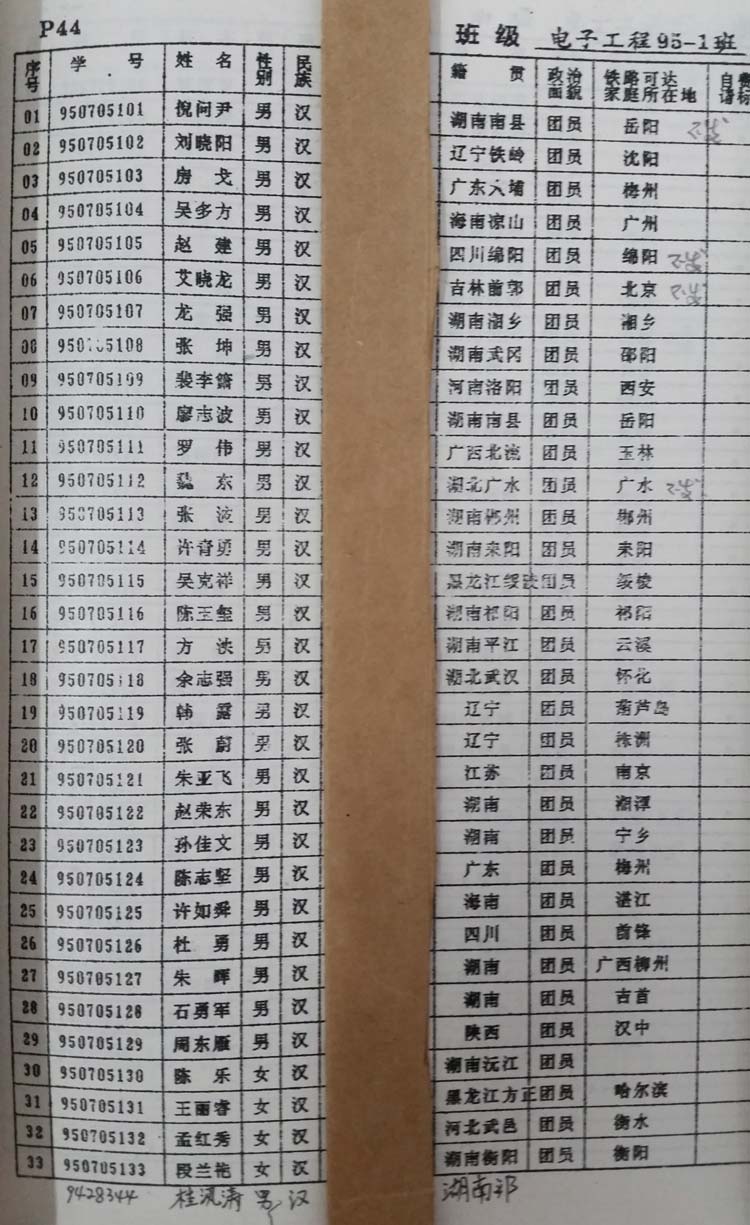 P44 班级 电子工程95-1班
序号 学号 姓名 性别 民族 籍贯 政治面貌 铁路可达家庭所在地 自费 请标
01 950705101 倪问尹 男 汉 湖南南县 团员 岳阳
02 950705102 刘晓阳 男 汉 辽宁铁岭 团员 沈阳
03 950705103 房戈 男 汉 广东大埔 团员 梅州
04 950705104 吴多方 男 汉 海南凉山 团员 广州
05 950705105 赵建 男 汉 四川绵阳 团员 绵阳
06 950705106 艾晓龙 男 汉 吉林前郭 团员 北京
07 950705107 龙强 男 汉 湖南湘乡 团员 湘乡
08 950705108 张坤 男 汉 湖南武冈 团员 邵阳
09 950705109 裴李箫 男 汉 河南洛阳 团员 西安
10 950705110 廖志波 男 汉 湖南南县 团员 岳阳
11 950705111 罗伟 男 汉 广西北流 团员 玉林
12 950705112 魏东 男 汉 湖北广水 团员 广水
13 950705113 张波 男 汉 湖南郴州 团员 郴州
14 950705114 许奇勇 男 汉 湖南耒阳 团员 耒阳
15 950705115 吴克祥 男 汉 黑龙江绥棱 团员 绥棱
16 950705116 陈玉玺 男 汉 湖南祁阳 团员 祁阳
17 950705117 方 男 汉 湖南平江 团员 云溪
18 950705118 余志强 男 汉 湖北武汉 团员 怀化
19 950705119 韩露 男 汉 辽宁 团员 葫芦岛
20 950705120 张蔚 男 汉 辽宁 团员 株洲
21 950705121 朱亚飞 男 汉 江苏 团员 南京
22 950705122 赵荣东 男 汉 湖南 团员 湘潭
23 950705123 孙佳文 男 汉 湖南 团员 宁乡
24 950705124 陈志坚 男 汉 广东 团员 梅州
25 950705125 许如舜 男 汉 海南 团员 湛江
26 950705126 杜勇 男 汉 四川 团员 首锋
27 950705127 朱晖 男 汉 湖南 团员 广西柳州
28 950705128 石勇军 男 汉 湖南 团员 吉首
29 950705129 周东雁 男 汉 陕西 团员 汉中
30 950705130 陈乐 女 汉 湖南沅江 团员
31 950705131 王丽睿 女 汉 黑龙江方正 团员 哈尔滨
32 950705132 孟红秀 女 汉 河北武邑 团员 衡水
33 950705133 段兰艳 女 汉 湖南衡阳 团员 衡阳
9428344 桂 涛 男 汉 湖南祁